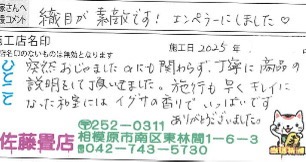 客さんへ
接コメント
織目が素敵です!エンペラーにしました♡
施工店名印
店名のないものは無効となります
施工日 2025.
ひとこと
突然おじゃましたのにも関わらず、丁寧に商品の
説明をして頂いました。施行も早くキレイに
なった和室にはイグサの香りでいっぱいです
ありがとうございました。
☎252-0311
佐藤畳店
相模原市南区東林間1-6-3
☎042-743-5730